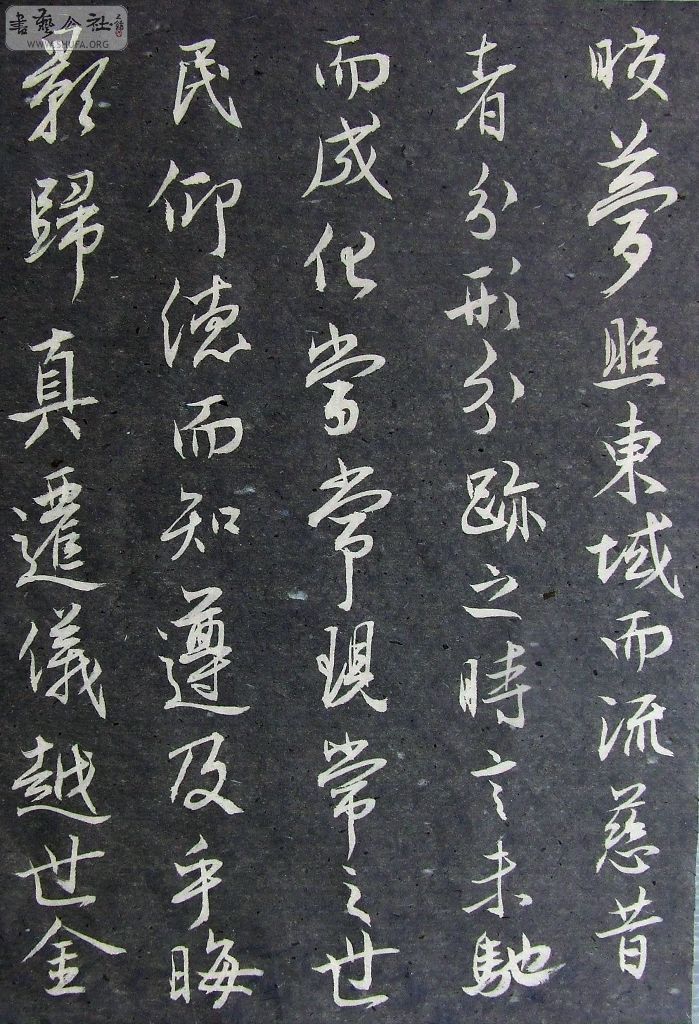 書藝公社
WWW.SHUFA.ORG
皎夢照東域而流慈昔
者分形分跡之時言未馳
而成化當常現常之世
民仰德而知遵及乎晦
影歸真遷儀越世金